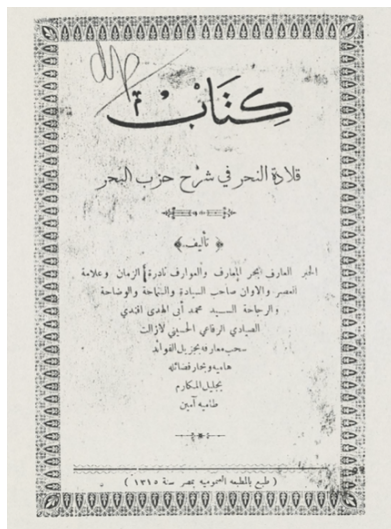 كتاب
قلادة النحر في شرح حزب البحر
﴿ تأليف ﴾
الحبر العارف بحر المعارف والعوارف نادرة الزمان وعلامة
العصر والاوان صاحب السيادة والسماحة والوضاحة
والرجاحة السيد محمد أبى الهدى افندي
الصيادي الرفاعي الحسيني لازالت
سحب معارفه بجزيل الفوائد
هامية وبحار فضائله
بجليل المكارم
طامية آمين
( طبع بالمطبعة العمومية بمصر سنة ١٣١٥ )